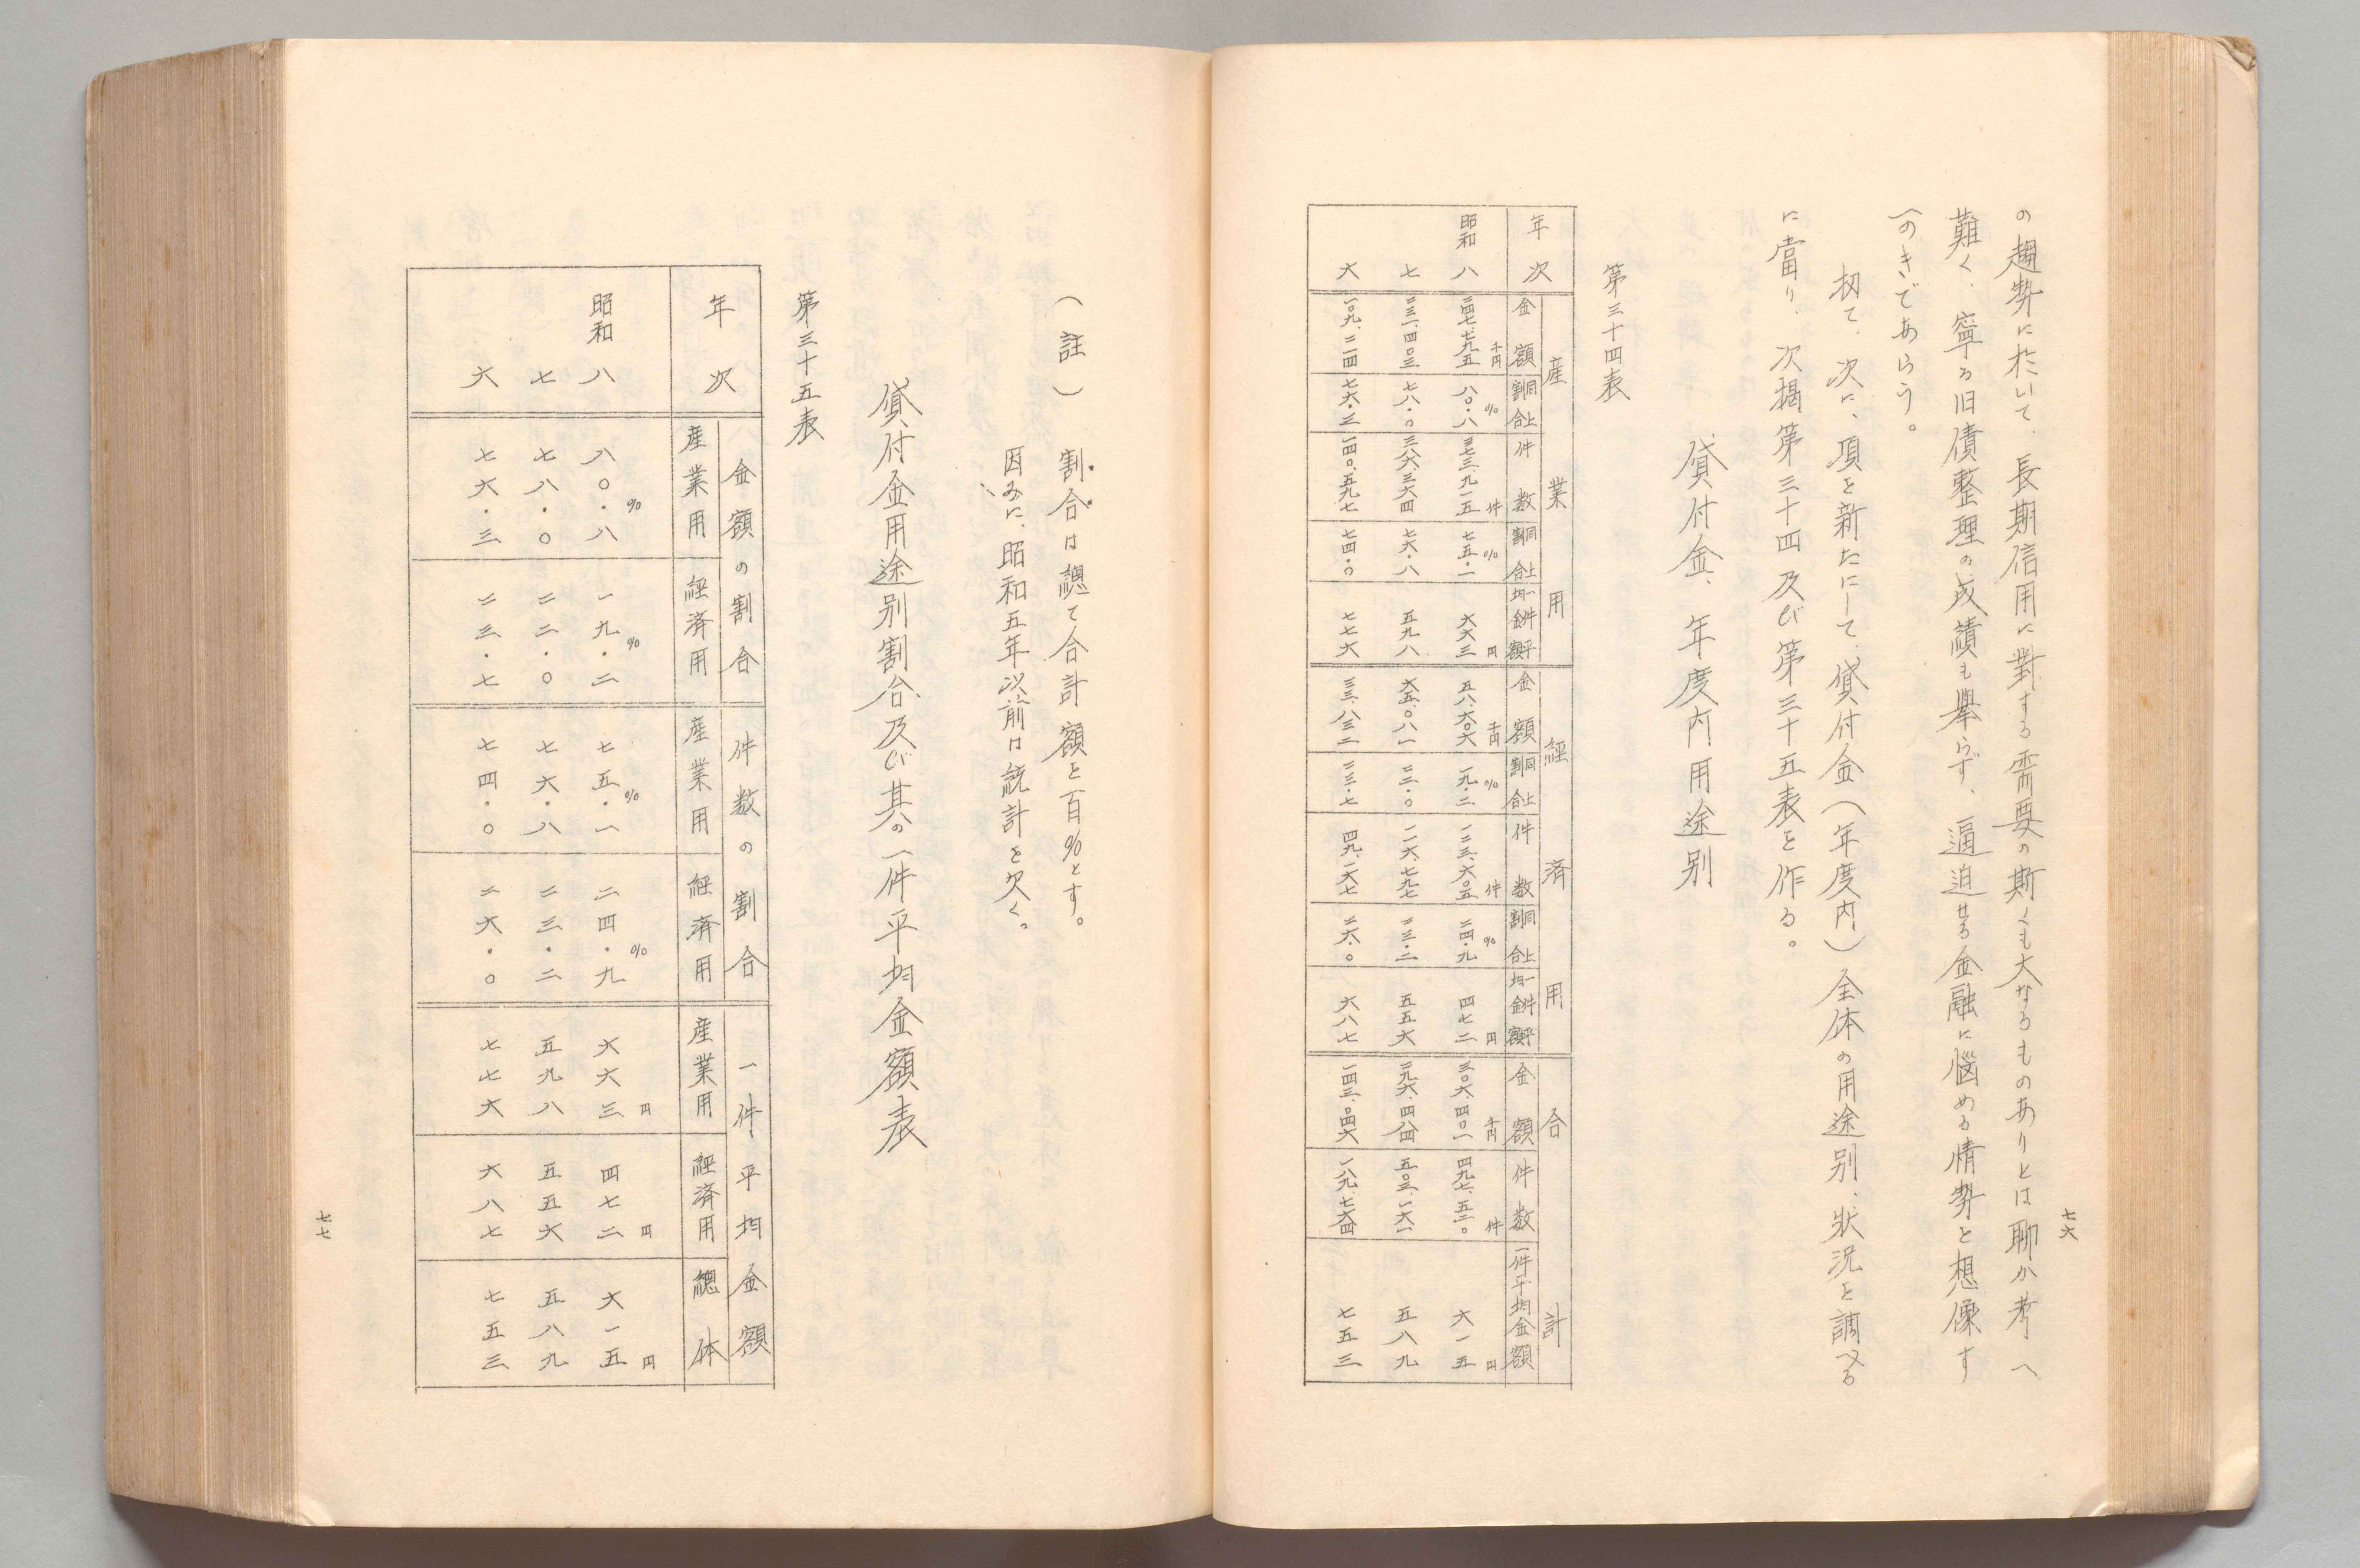 の趨勢に於いて、長期信用に對する需要の斯くも大なるものありとは聊か考へ
難く、寧ろ旧債整理の成績も擧らず、逼迫せる金融に悩める情勢と想像す
べきであらう。
扨て、次に、項を新たにして、貸付金(年度内)全体の用途別、狀况を調べる
に當り、次揭第三十四及び第三十五表を作る。
貸付金、年度内用途別
第三十四表
年次 産業用 経済用 合計
金額 同上割合 件数 同上割合 一件平均金額 金額 同上割合 件数 同上割合 一件平均金額 金額 件数 一件平均金額
昭和八 二四七、七九五千円 八〇・八% 三七三、九一五件 七五・一% 六六三円 五八、六〇六千円 一九・二% 一二三、六〇五件 二四・九% 四七二円 三〇六、四〇一千円 四九七、五二〇件 六一五円
七 二三一、四〇三 七八・〇 三八六、三六四 七六・八 五九八 六五、〇八一 二二・〇 一一六、七九七 二三・二 五五六 二九六、四八四 五〇三、一六一 五八九
六 一〇九、二一四 七六・三 一四〇、五九七 七四・〇 七七六 三三、八三二 二三・七 四九、一六七 二六・〇 六八七 一四三、〇四六 一八九、七六四 七五三
七六
(註) 割合は總て合計額を百%とす。
因みに、昭和五年以前は統計を欠く。
貸付金用途別割合及び其の一件平均金額表
第三十五表
年次 金額の割合 件数の割合 一件平均金額
産業用 経済用 産業用 経済用 産業用 経済用 總体
昭和八 八〇・八% 一九・二% 七五・一% 二四・九% 六六三円 四七二円 六一五円
七 七八・〇 二二・〇 七六・八 二三・二 五九八 五五六 五八九
六 七六・三 二三・七 七四・〇 二六・〇 七七六 六八七 七五三
七七